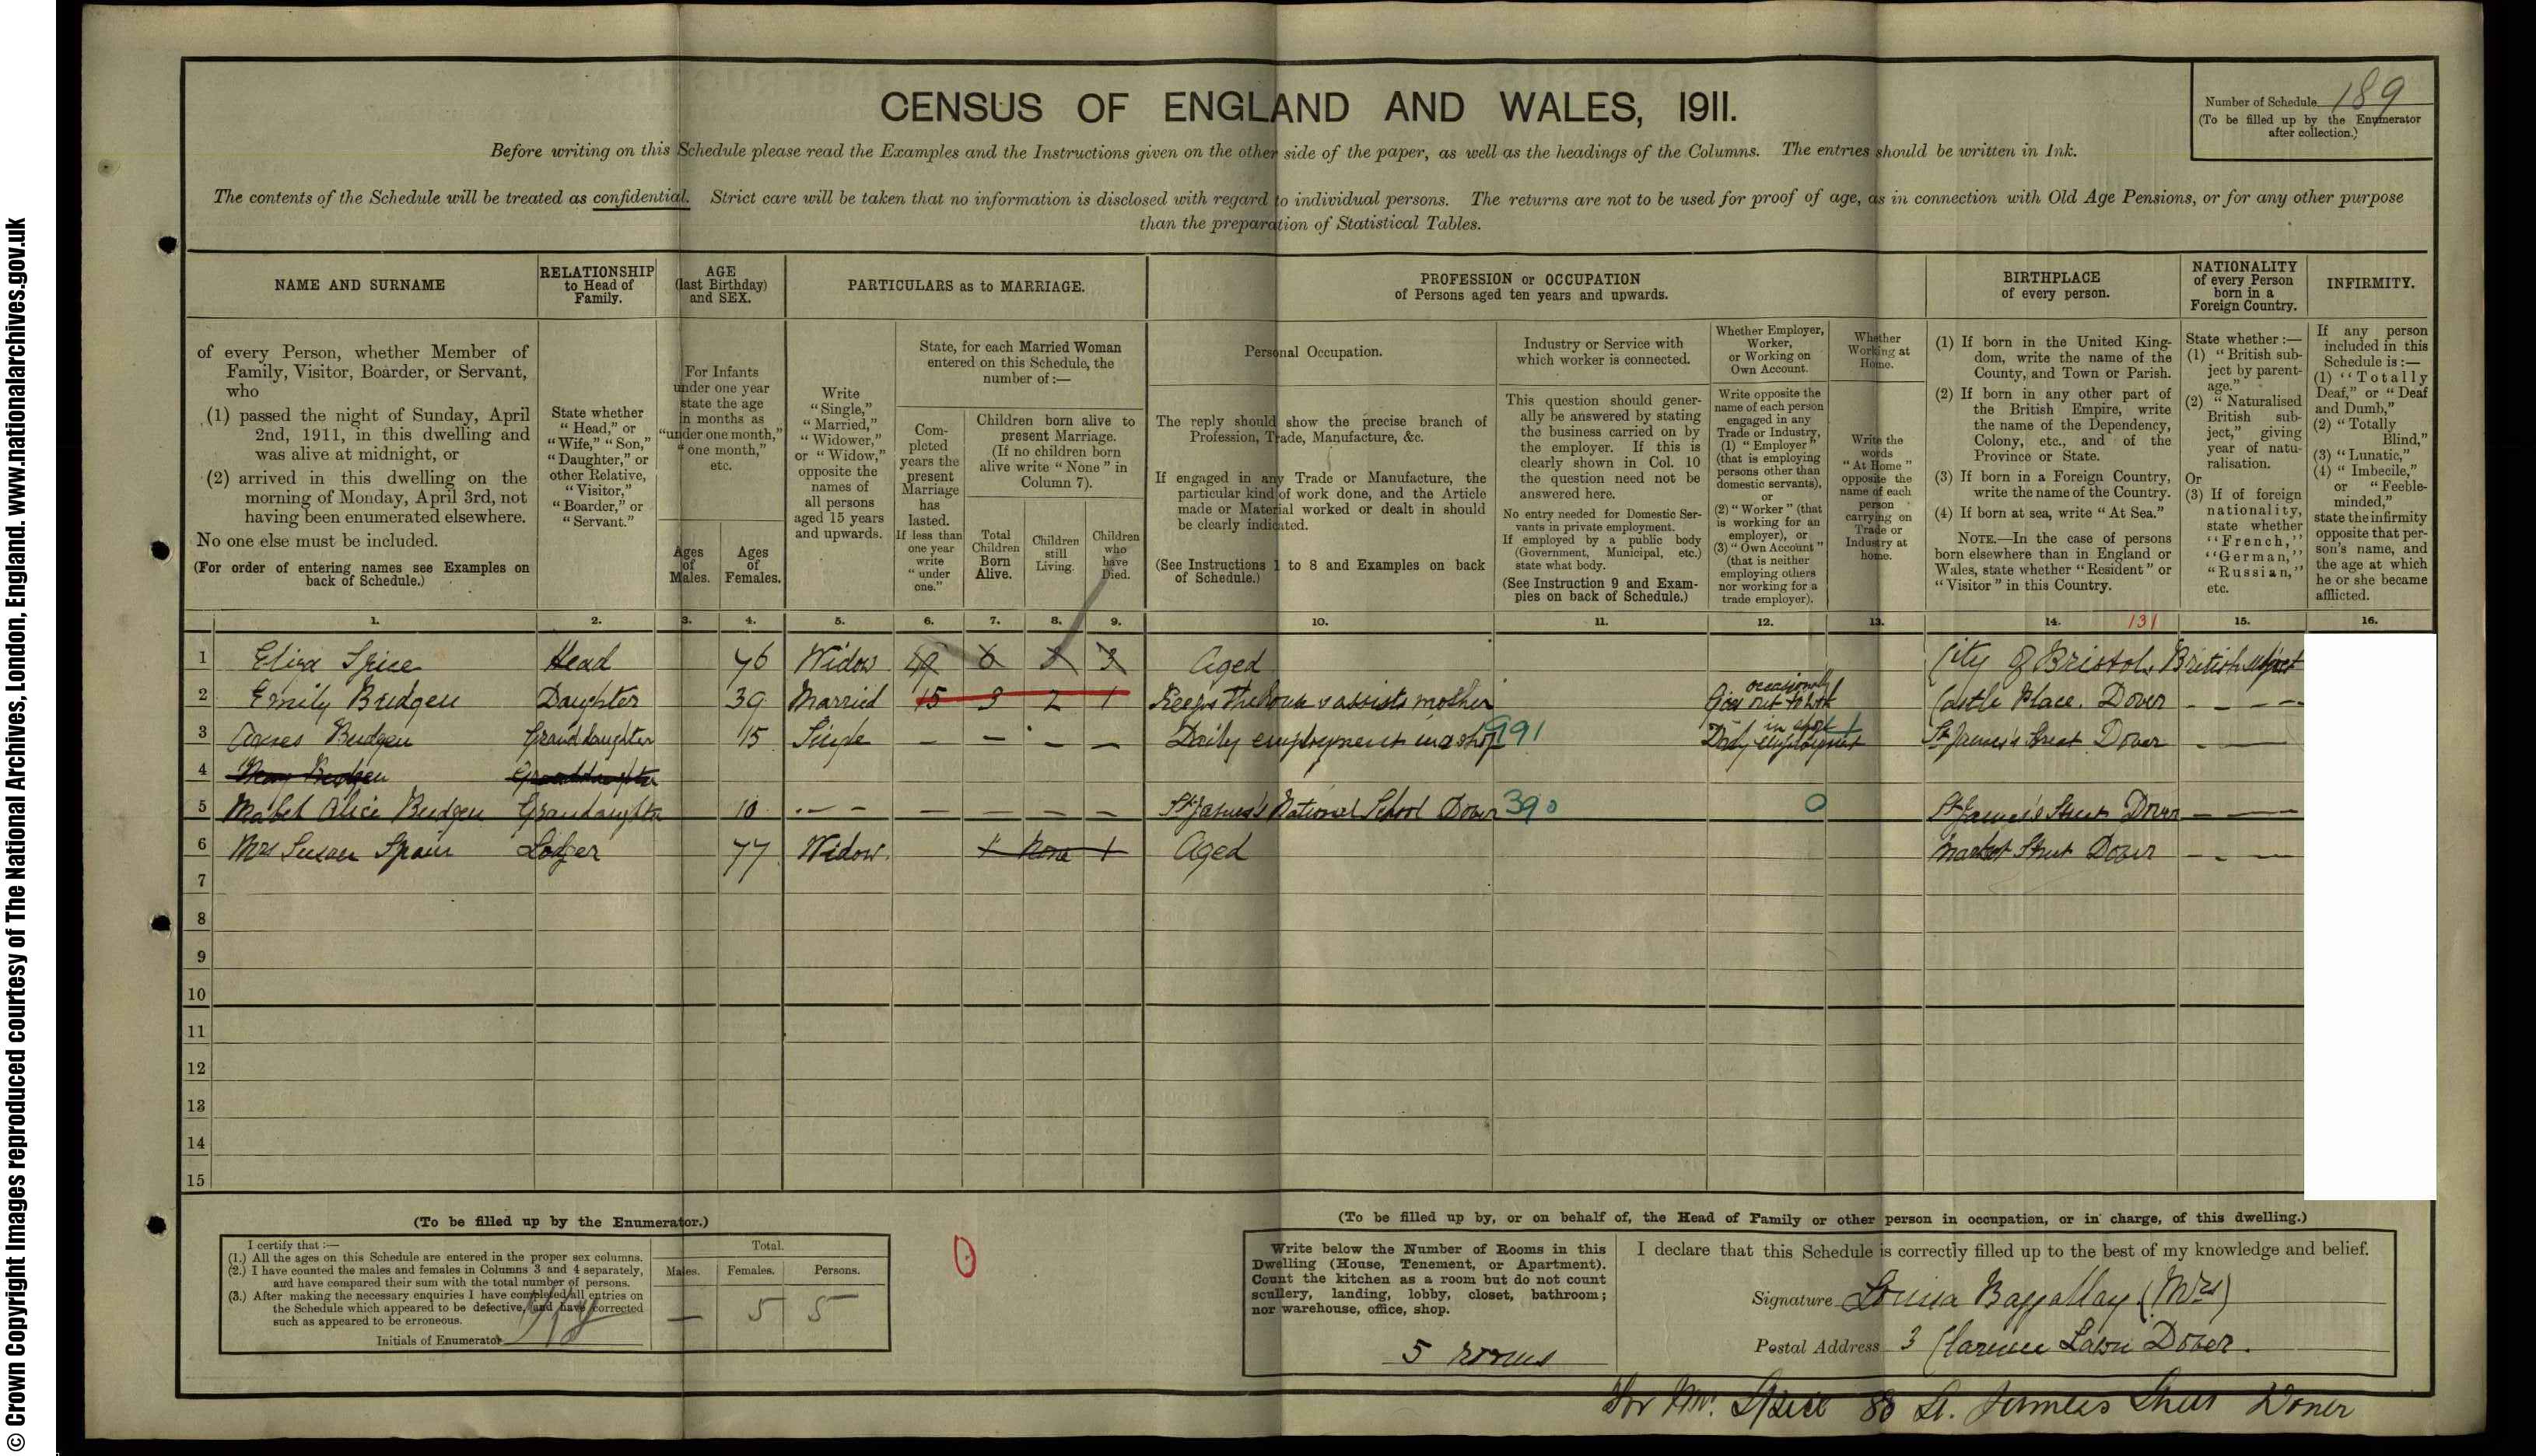 © Crown Copyright Images reproduced courtesy of The National Archives, London, England. www.nationalarchives.gov.uk
CENSUS OF ENGLAND AND WALES, 1911.
Number of Schedule 189
(To be filled up by the Enumerator after collection.)
Before writing on this Schedule please read the Examples and the Instructions given on the other side of the paper, as well as the headings of the Columns. The entries should be written in Ink.
The contents of the Schedule will be treated as confidential. Strict care will be taken that no information is disclosed with regard to individual persons. The returns are not to be used for proof of age, as in connection with Old Age Pensions, or for any other purpose
than the preparation of Statistical Tables.
NAME AND SURNAME
of every Person, whether Member of
Family, Visitor, Boarder, or Servant,
who
(1) passed the night of Sunday, April
2nd, 1911, in this dwelling and
was alive at midnight, or
(2) arrived in this dwelling on the
morning of Monday, April 3rd, not
having been enumerated elsewhere.
No one else must be included.
(For order of entering names see Examples on
back of Schedule.)
RELATIONSHIP
to Head of
Family.
State whether
"Head," or
"Wife," "Son,"
"Daughter," or
other Relative,
"Visitor,"
"Boarder," or
"Servant."
AGE
(last Birthday)
and SEX.
For Infants
under one year
state the age
in months as
"under one month,"
"one month,"
etc.
Ages
of
Males.
Ages
of
Females.
PARTICULARS as to MARRIAGE.
Write
"Single,"
"Married,"
"Widower,"
or "Widow,"
opposite the
names of
all persons
aged 15 years
and upwards.
State, for each Married Woman
entered on this Schedule, the
number of:—
Com-
pleted
years the
present
Marriage
has
lasted.
If less than
one year
write
"under
one."
Children born alive to
present Marriage.
(If no children born
alive write "None" in
Column 7).
Total
Children
Born
Alive.
Children
still
Living.
Children
who
have
Died.
PROFESSION or OCCUPATION
of Persons aged ten years and upwards.
Personal Occupation.
The reply should show the precise branch of
Profession, Trade, Manufacture, &c.
If engaged in any Trade or Manufacture, the
particular kind of work done, and the Article
made or Material worked or dealt in should
be clearly indicated.
(See Instructions 1 to 8 and Examples on back
of Schedule.)
Industry or Service with
which worker is connected.
This question should gener-
ally be answered by stating
the business carried on by
the employer. If this is
clearly shown in Col. 10
the question need not be
answered here.
No entry needed for Domestic Ser-
vants in private employment.
If employed by a public body
(Government, Municipal, etc.)
state what body.
(See Instruction 9 and Exam-
ples on back of Schedule.)
Whether Employer,
Worker,
or Working on
Own Account.
Write opposite the
name of each person
engaged in any
Trade or Industry,
(1) "Employer"
(that is employing
persons other than
domestic servants),
or
(2) "Worker" (that
is working for an
employer), or
(3) "Own Account"
(that is neither
employing others
nor working for a
trade employer).
Whether
Working at
Home.
Write the
words
"At Home"
opposite the
name of each
person
carrying on
Trade or
Industry at
home.
BIRTHPLACE
of every person.
(1) If born in the United King-
dom, write the name of the
County, and Town or Parish.
(2) If born in any other part of
the British Empire, write
the name of the Dependency,
Colony, etc., and of the
Province or State.
(3) If born in a Foreign Country,
write the name of the Country.
(4) If born at sea, write "At Sea."
NOTE.—In the case of persons
born elsewhere than in England or
Wales, state whether "Resident" or
"Visitor" in this Country.
NATIONALITY
of every Person
born in a
Foreign Country.
State whether:—
(1) "British sub-
ject by parent-
age."
(2) "Naturalised
British sub-
ject," giving
year of natu-
ralisation.
Or
(3) If of foreign
nationality,
state whether
"French,"
"German,"
"Russian,"
etc.
INFIRMITY.
If any person
included in this
Schedule is:—
(1) "Totally
Deaf," or "Deaf
and Dumb,"
(2) "Totally
Blind,"
(3) "Lunatic,"
(4) "Imbecile,"
or "Feeble-
minded,"
state the infirmity
opposite that per-
son's name, and
the age at which
he or she became
afflicted.
1. 2. 3. 4. 5. 6. 7. 8. 9. 10. 11. 12. 13. 14. 131 15. 16.
1 Eliza Spice Head 76 Widow 6 3 Aged City of Bristol British subject
2 Emily Budgen Daughter 39 Married 15 3 2 1 Keeps the house & assists mother occasionally Goes out to work Castle Place. Dover – – – –
3 Agnes Budgen Granddaughter 15 Single – – – – Daily employment in a shop 991 Daily employment in shop St James's Street Dover – —
4 Budgen Granddaughter
5 Mabel Alice Budgen Grandaughter 10 – – – – – – – St James's National School Dover 390 0 St James's Street Dover – —
6 Mrs Susan Spain Lodger 77 Widow. None Aged Market Street Dover – – —
7
8
9
10
11
12
13
14
15
(To be filled up by the Enumerator.)
I certify that:—
(1.) All the ages on this Schedule are entered in the proper sex columns.
(2.) I have counted the males and females in Columns 3 and 4 separately,
and have compared their sum with the total number of persons.
(3.) After making the necessary enquiries I have completed all entries on
the Schedule which appeared to be defective, and have corrected
such as appeared to be erroneous.
Initials of Enumerator
Total.
Males. Females. Persons.
— 5 5
(To be filled up by, or on behalf of, the Head of Family or other person in occupation, or in charge, of this dwelling.)
Write below the Number of Rooms in this
Dwelling (House, Tenement, or Apartment).
Count the kitchen as a room but do not count
scullery, landing, lobby, closet, bathroom;
nor warehouse, office, shop.
5 rooms
I declare that this Schedule is correctly filled up to the best of my knowledge and belief.
Signature Louisa Baggallay (Mrs)
Postal Address 3 Clarence Lawn Dover.
For Mrs. Spice 80 St. James's Street Dover